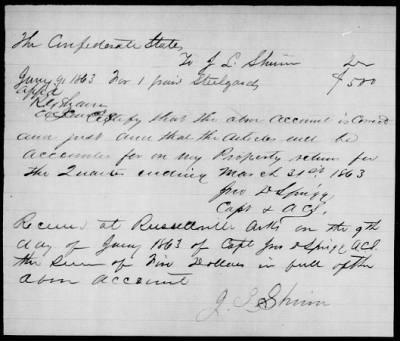 The Confederate States
To J L Shinn Dr
Jany 9, 1863 For 1 pair Steelyards $500
appd
I Certify that the abov account is Correct
and just and that the Articles will be
accounted for on my Property return for
the Quarter ending March 31st 1863
Jno D Spriggs
Capt & ACS.
Received at Russellville Arks on the 9th
day of Jany 1863 of Capt Jno D Spriggs ACS
the Sum of Five Dollars in full of the
abov account
J. L. Shinn